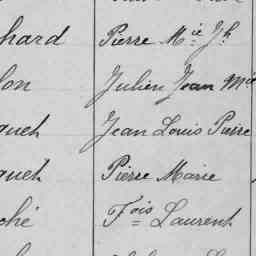 hard Pierre Mie Jh
lon Julien Jean Mie
quet Jean Louis Pierre
quet Pierre Marie
ché Fois Laurent